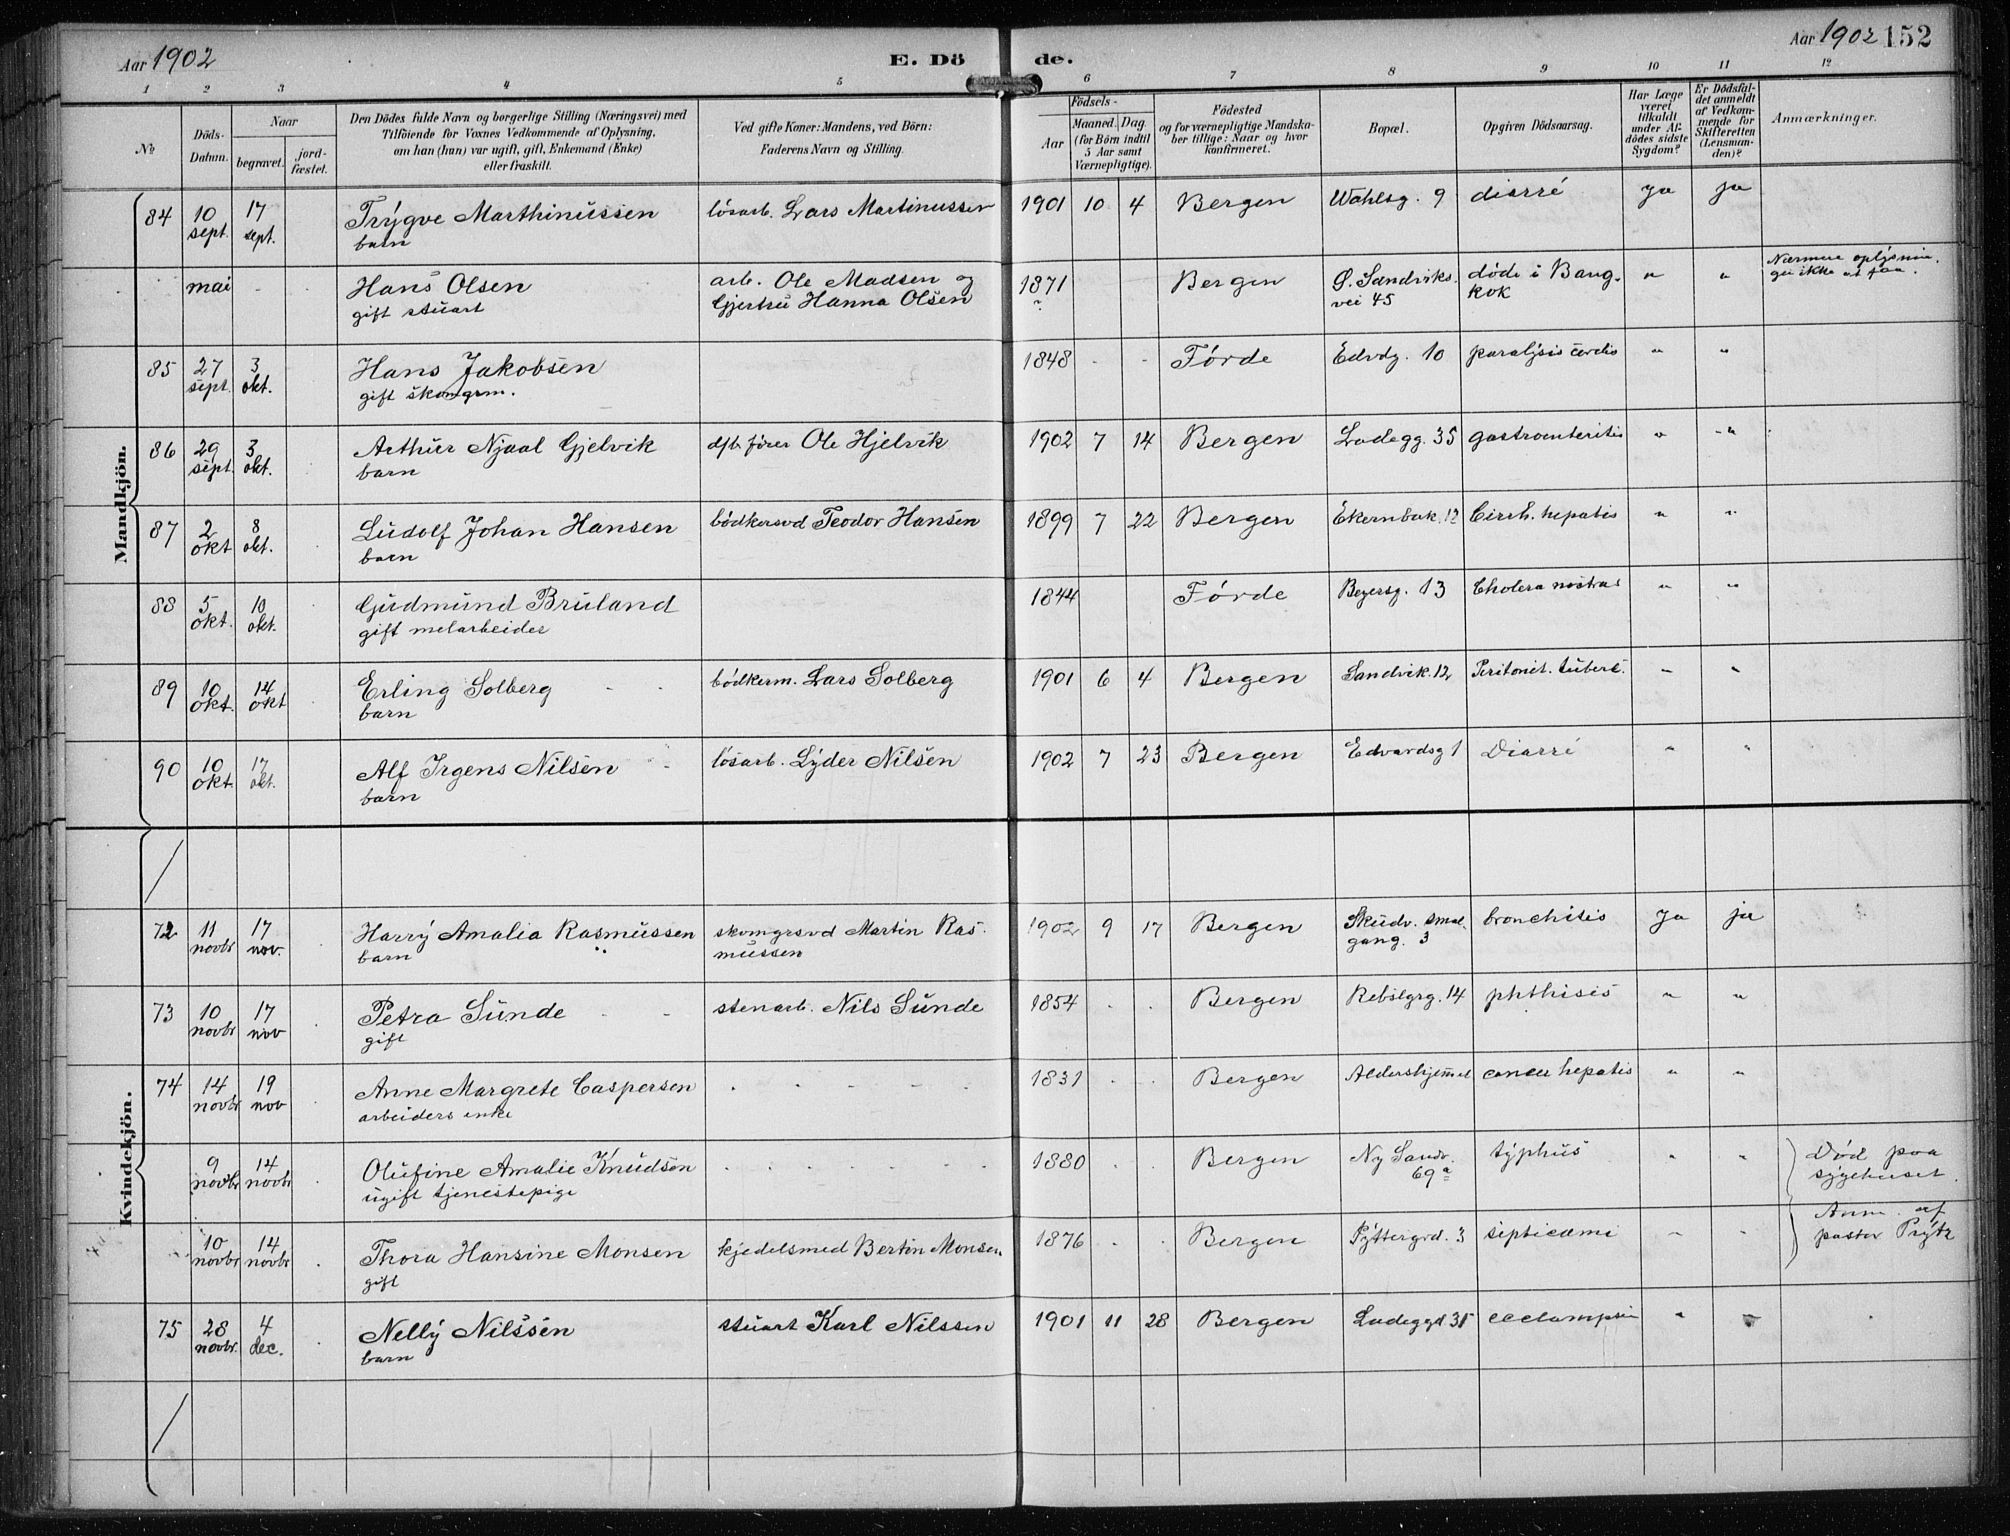 Aar 1902
E. Dö
de.
Aar 1902
152
1 2 3 4 5 6 7 8 9 10 11 12
No
Döds-Datum.
Naar
begravet.
jord-fæstet.
Den Dödes fulde Navn og borgerlige Stilling (Næringsvei) med
Tilföiende for Voxnes Vedkommende af Oplysning,
om han (hun) var ugift, gift, Enkemand (Enke)
eller fraskilt.
Ved gifte Koner: Mandens, ved Börn:
Faderens Navn og Stilling.
Födsels-
Aar
Maaned. Dag.
(for Börn indtil
5 Aar samt
Værnepligtige).
Födested
og for værnepligtige Mandska-
ber tillige: Naar og hvor
konfirmeret.
Bopæl.
Opgiven Dödsaarsag.
Har Læge
været
tilkaldt
under Af-
dödes sidste
Sygdom?
Er Dödsfal-
det anmeldt
af Vedkom-
mende for
Skifteretten
(Lensman-
den)?
Anmærkninger.
Mandkjön.
84 10 sept. 17 sept. Trygve Marthinussen løsarb. Lars Martinussen 1901 10 4 Bergen Wahlsg. 9 diarré ja ja
barn
mai Hans Olsen arb. Ole Madsen og 1871 Bergen Ø. Sandviks. døde i Bang- " "
gift stuart Gjertru Hanna Olsen ? vei 45 kok
Nærmere oplysnin.
ger ikke at faa.
85 27 sept. 3 okt. Hans Jakobsen 1848 - - Førde Edvdg. 10 paralysis cordis " "
gift skomgrm.
86 29 sept. 3 okt. Arthur Njaal Gjelvik dfb. fører Ole Hjelvik 1902 7 14 Bergen Ladegg. 35 gastroenteritis " "
barn
87 2 okt 8 okt. Ludolf Johan Hansen bødkersvd Teodor Hansen 1899 7 22 Bergen Ekernbak. 12 Cirrh. hepatis " "
barn
88 5 okt. 10 okt. Gudmund Bruland 1844 Førde Beyersg. 13 Cholera nostras " "
gift melarbeider
89 10 okt. 14 okt Erling Solberg bødkerm. Lars Solberg 1901 6 4 Bergen Sandvik. 12 Peritonit. tuberc. " "
barn
90 10 okt. 17 okt. Alf Irgens Nilsen løsarb. Lyder Nilsen 1902 7 23 Bergen Edvardsg 1 Diarré " "
barn
Kvindekjön.
72 11 novbr 17 nov. Harry Amalia Rasmussen skomgrsvd Martin Ras- 1902 9 17 Bergen Skudv. smal. bronchitis ja ja
barn mussen gang. 3
73 10 novbr 17 nov Petra Sunde stenarb. Nils Sunde 1854 . . Bergen Rebslgrg. 14 phthisis " "
gift
74 14 novbr 19 nov Anne Margrete Caspersen 1831 . . Bergen Aldershjemmet cancer hepatis " "
arbeiders enke
9 novbr 14 novbr Olufine Amalie Knudsen 1880 . . Bergen Ny Sandv. typhus " "
ugift tjenestepige 69 a
Død paa
sygehuset.
10 novbr 14 novbr Thora Hansine Monsen kjedelsmed Bertin Monsen 1876 . . Bergen Pyttergrd. 3 septicæmi " "
gift
Anm. af
pastor Prytz
75 28 novbr. 4 dec. Nelly Nilssen stuart Karl Nilssen 1901 11 28 Bergen Ladeggd 35 ecclampsia " "
barn